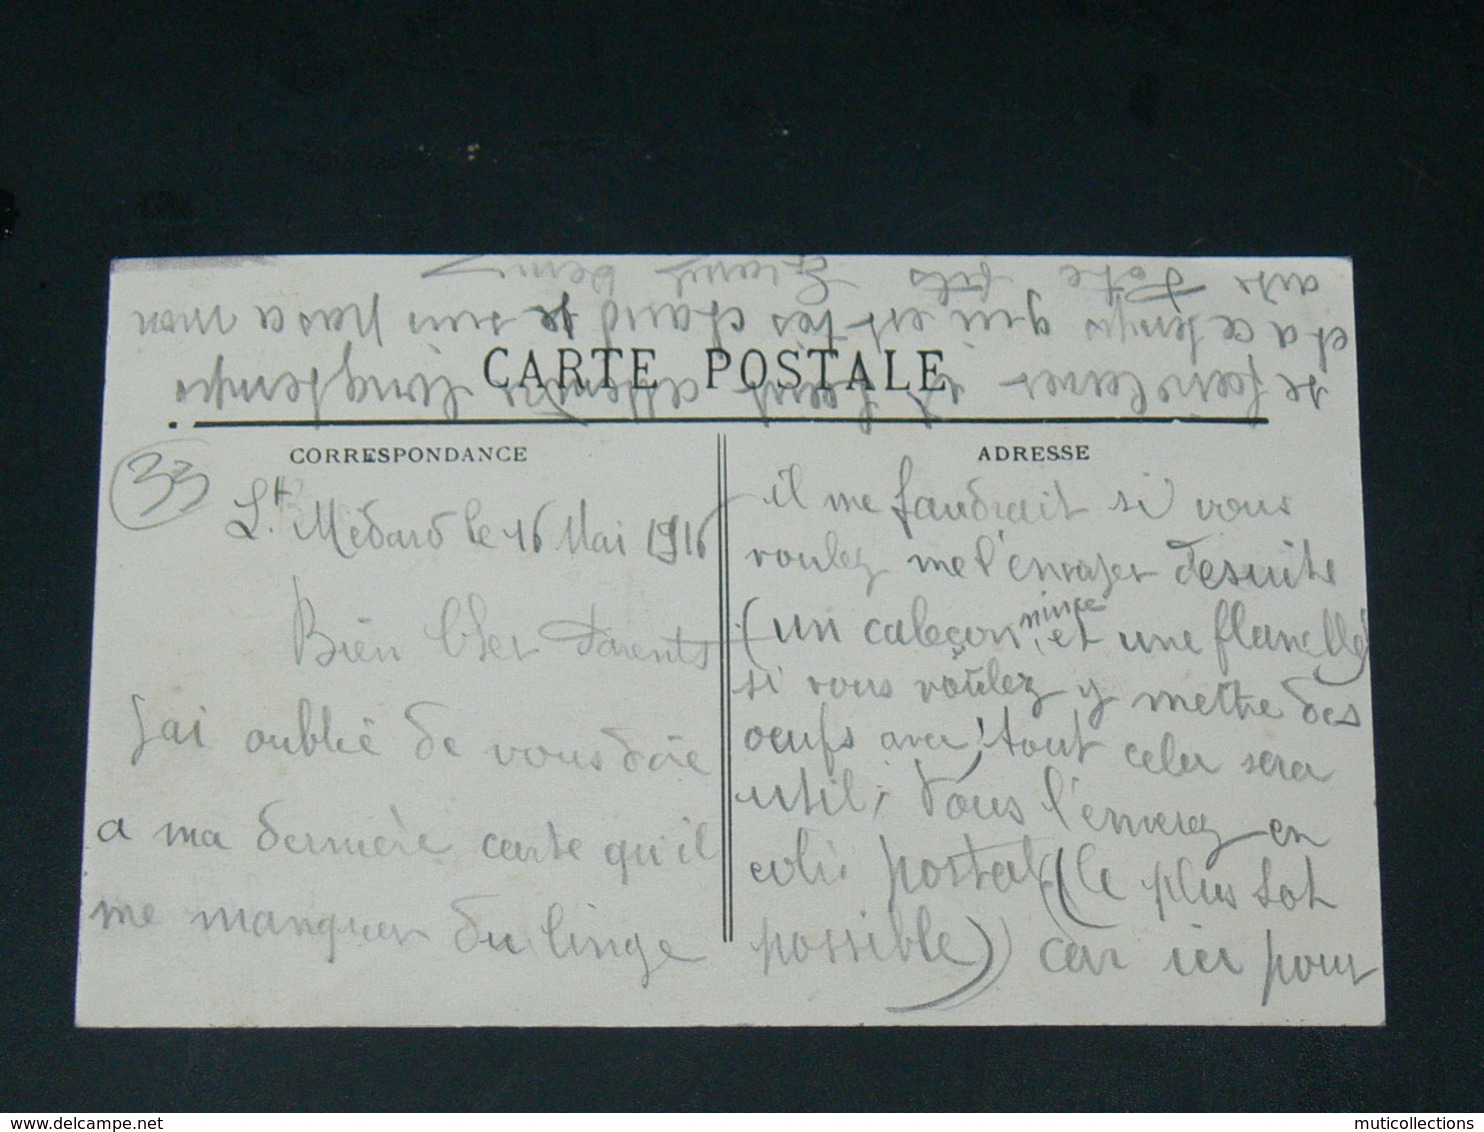 CARTE POSTALE
CORRESPONDANCE
ADRESSE
33
St Médard le 16 Mai 1916
Bien Cher Parents
J'ai oublié de vous doie
a ma dernière carte qu'il
me manquer du linge
il me faudrait si vous
voulez me l'envoyer desuite
(un caleçon mince et une flanelle
si vous voulez y metre des
oeufs avec, tout cela sera
util, Vous l'enverez en
colis postal (le plus tot
possible) car ici pour
se faire laver il faut attendre longtemps
et a ce temps qui est tès chaud je suis pas a mon
aise Votre fils
www.delcampe.net
muticollections